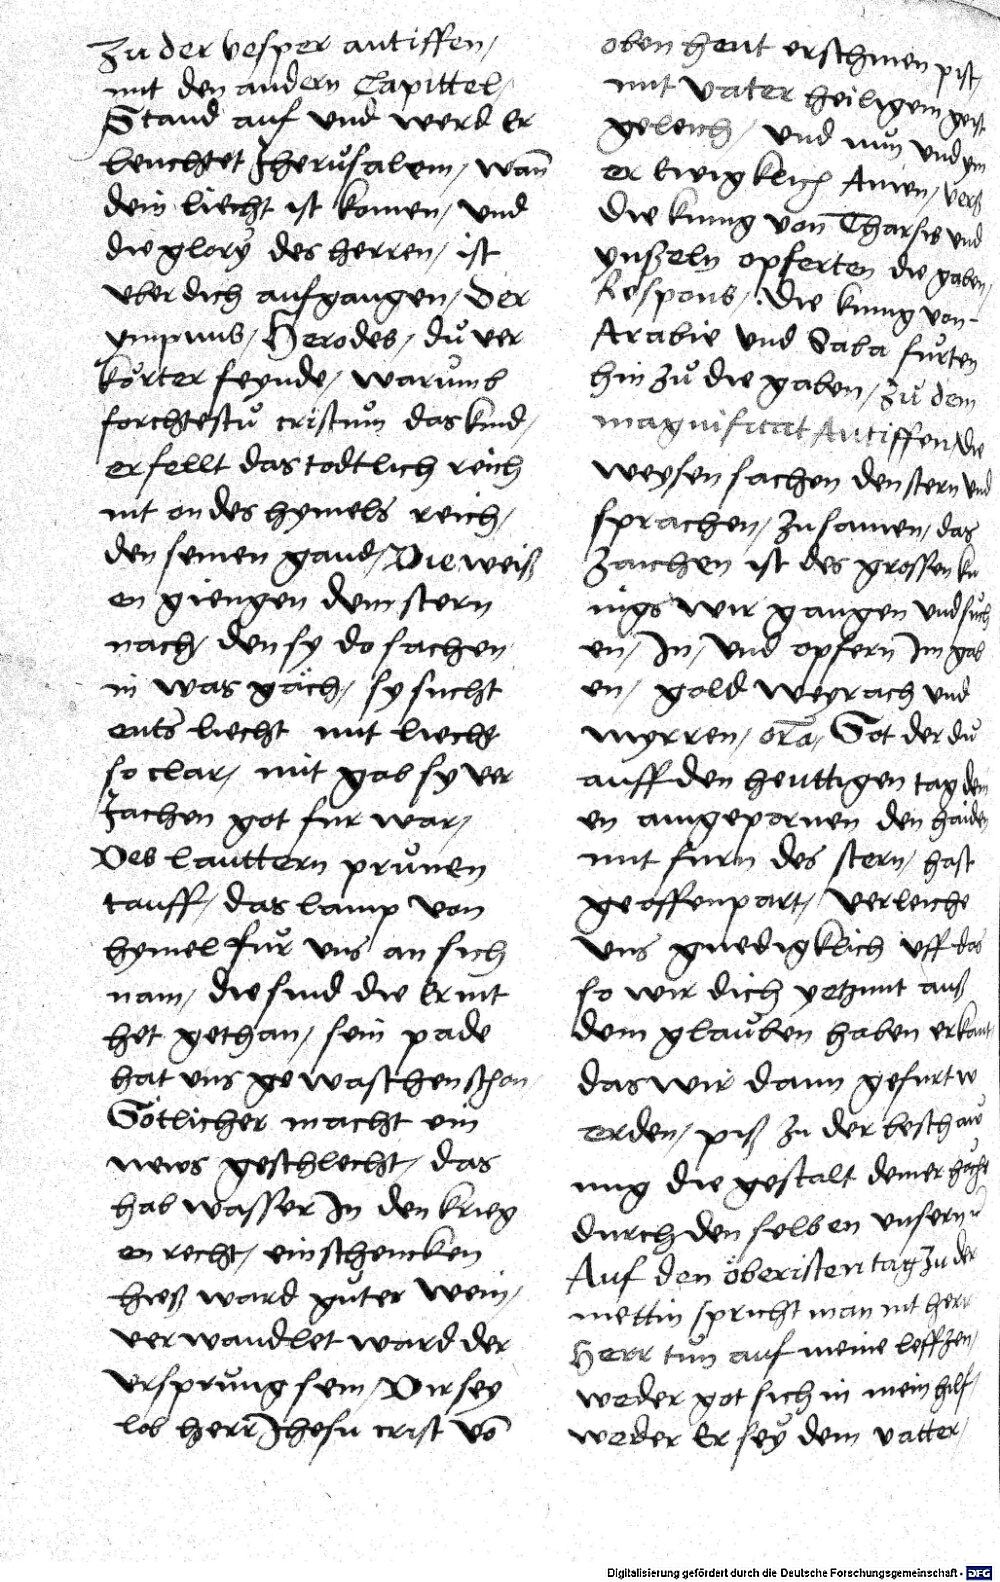 Zu der vesper antiffen /
mit den andern Capittel /
Stand auf vnd werd Er
leuchtet Jherůsalem / wañ
dein liecht ist komen / vnd
die glory des herren / ist
vber dich aufgangen / Der
ympnus / Herodes / dů ver
körter feynde / warůmb
forchtestů cristum das kind /
er fellt das todtlich reich
nit on des hymels reich /
den seinen gand / Die weiß
en giengen dem stern
nach / den sy do sachen
in was gäch / sy sucht
ents liecht mit liecht
so clar / mit gab sy ver
Jachen got fur war /
Des lauttern průnen
tauff / das lamp von
hymel fůr vns an sich
nam / die sind die Er nit
het gethan / sein pade
hat vns gewaschen schon /
Götlicher macht ein
news geschlecht / das
hab wasser In den krieg
en recht / ein schencken
hieß ward gůter wein /
verwandlet ward der
vrsprůng sein / Dir sey
lob herr Jhesu crist võ
oben heut erschinen pist /
mit vater heiligem geist
geleich / vnd nun vnd ym
er Ewigklich Amen / verß
Die kunig von Tharsis vnd
ynßeln opferten die gaben /
Respons / Die kunig von
Arabie vnd Saba fůrten
hin zů die gaben / zů dem
magnificat Antiffen / die
weysen sachen den stern vnd
sprachen / zu samen / das
zaichen ist des grossen ku
nigs wir gangen vnd sůch
en / In / vnd opfern Im gab
en / gold weyrach vnd
myrren / orã / Got der dů
auff den heuttigen tag dein
en aingepornen den haiden
mit furn des stern / hast
geoffenpart / verleiche
vns gnedigklich vff das
so wir dich yetzunt auß
dem glaůben haben erkant /
das wir dann gefurt w
erden / piß zu der beschaw
ung die gestalt deiner höche
durch den selben vnsern
Auf den öberisten tag zu der
mettin spricht man nit herr
Herr tun auf meine leffzen /
weder got sich in mein hilf /
weder Er sey dem vatter /
Digitalisierung gefördert durch die Deutsche Forschungsgemeinschaft - DFG